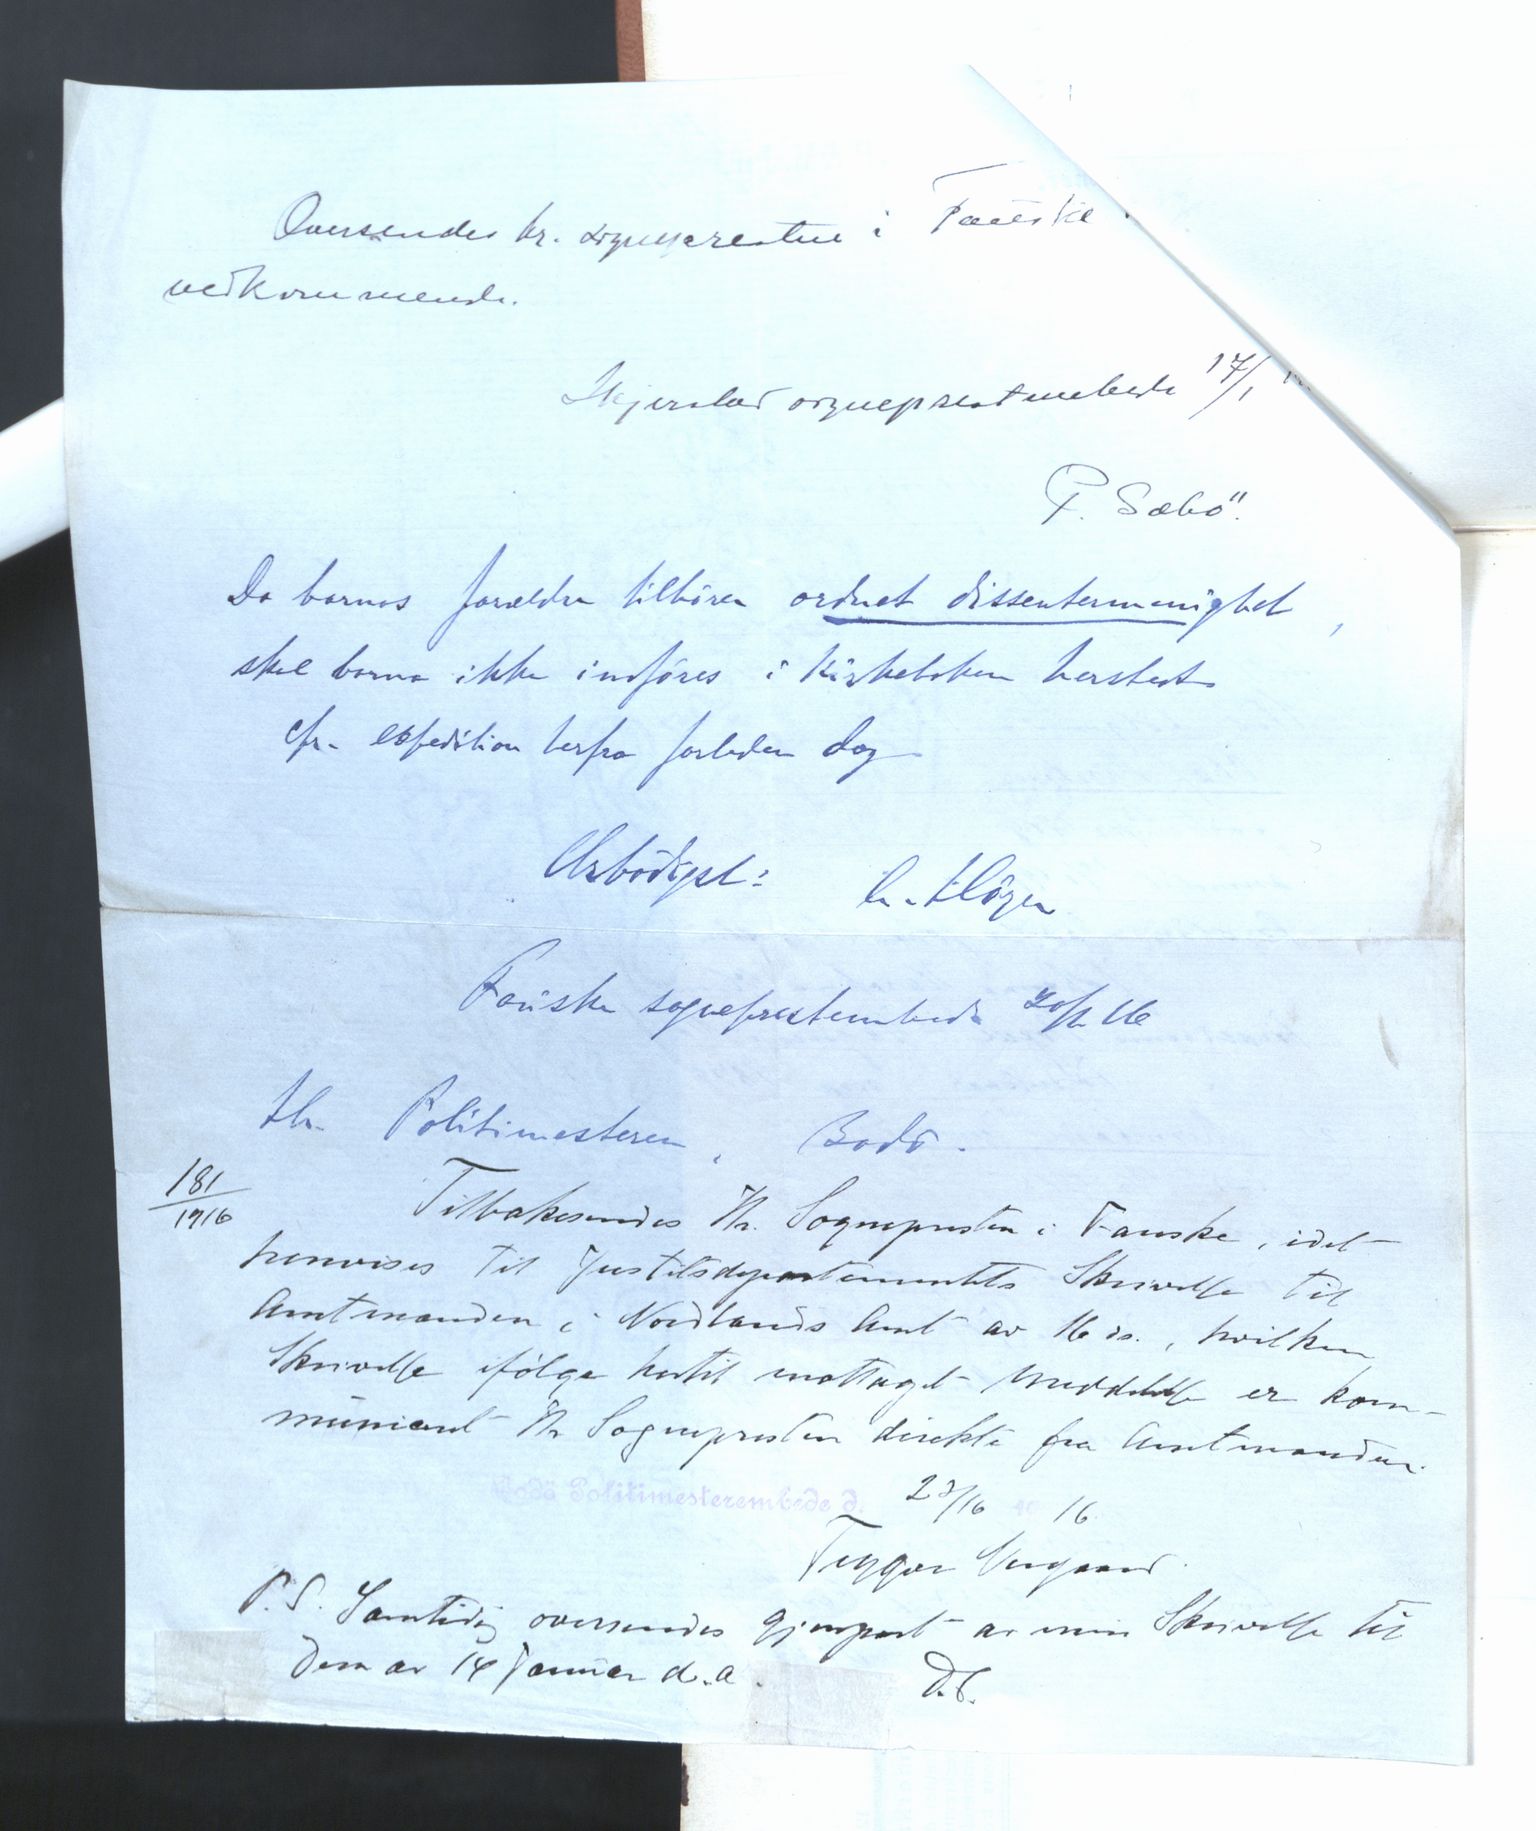 Oversendes hr. sognepresten i Fauske
vedkommende.
Skjerstad sogneprestembede 17/1
P. Sæbö.
Da barnas forældre tilhører ordnet dissentermenighet,
skal barna ikke indföres i kirkeboken hersteds
cfr. expedition herfra forleden dag
Ærbödigst:
Fauske sogneprestembede 20/1 16
Hr. Politimesteren, Bodö.
181
1916
Tilbakesendes Hr. Sognepresten i Fauske, idet
henvises til Justitsdepartementets Skrivelse til
Amtmanden i Nordlands Amt av 16 ds., hvilken
Skrivelse ifölge hertil mottaget Meddelelse er kom-
municert Hr Sognepresten direkte fra Amtmanden.
Bodö Politimesterembede d. 16
P.S. Samtidig oversendes gjenpart av min Skrivelse til
Dem av 14 Januar d.a.
D.S.